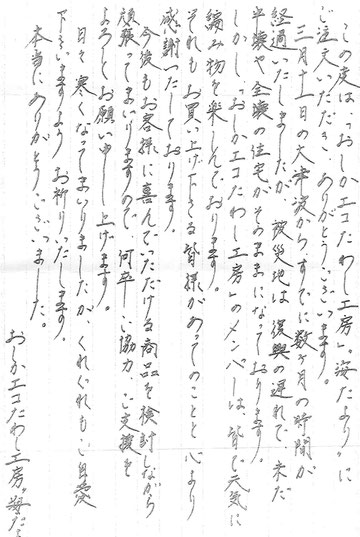 この度は、「おしかエコたわし工房」"海だより"に
ご注文いただき、ありがとうございます。
三月十一日の大津波からすでに数ヶ月の時間が
経過いたしましたが、被災地は復興の遅れで未だ
半壊や全壊の住宅がそのままになっております。
しかし「おしかエコたわし工房」のメンバーは皆で元気に
編み物を楽しんでおります。
それもお買い上げ下さる皆様があってのことと心より
感謝いたしております。
今後もお客様に喜んでいただける商品を検討しながら
頑張ってまいりますので何卒ご協力、ご支援を
よろしくお願い申し上げます。
日々寒くなってまいりましたが、くれぐれもご自愛
下さいますようお祈りいたします。
本当にありがとうございました。
おしかエコたわし工房"海だより